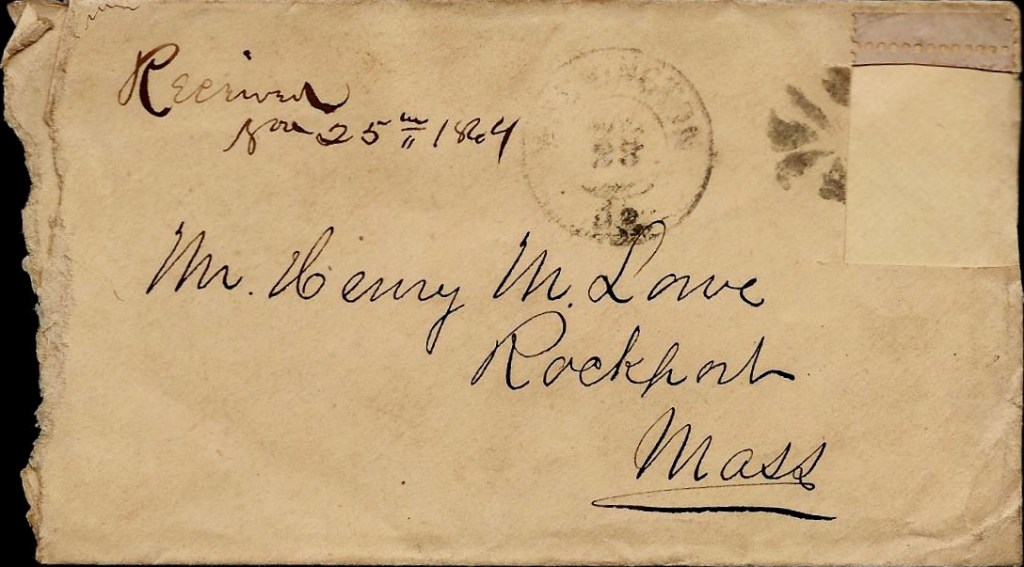 Received
Nov 25th 1864
WASHINGTON
NOV
23
Mr. Henry M. Lowe
Rockport
Mass